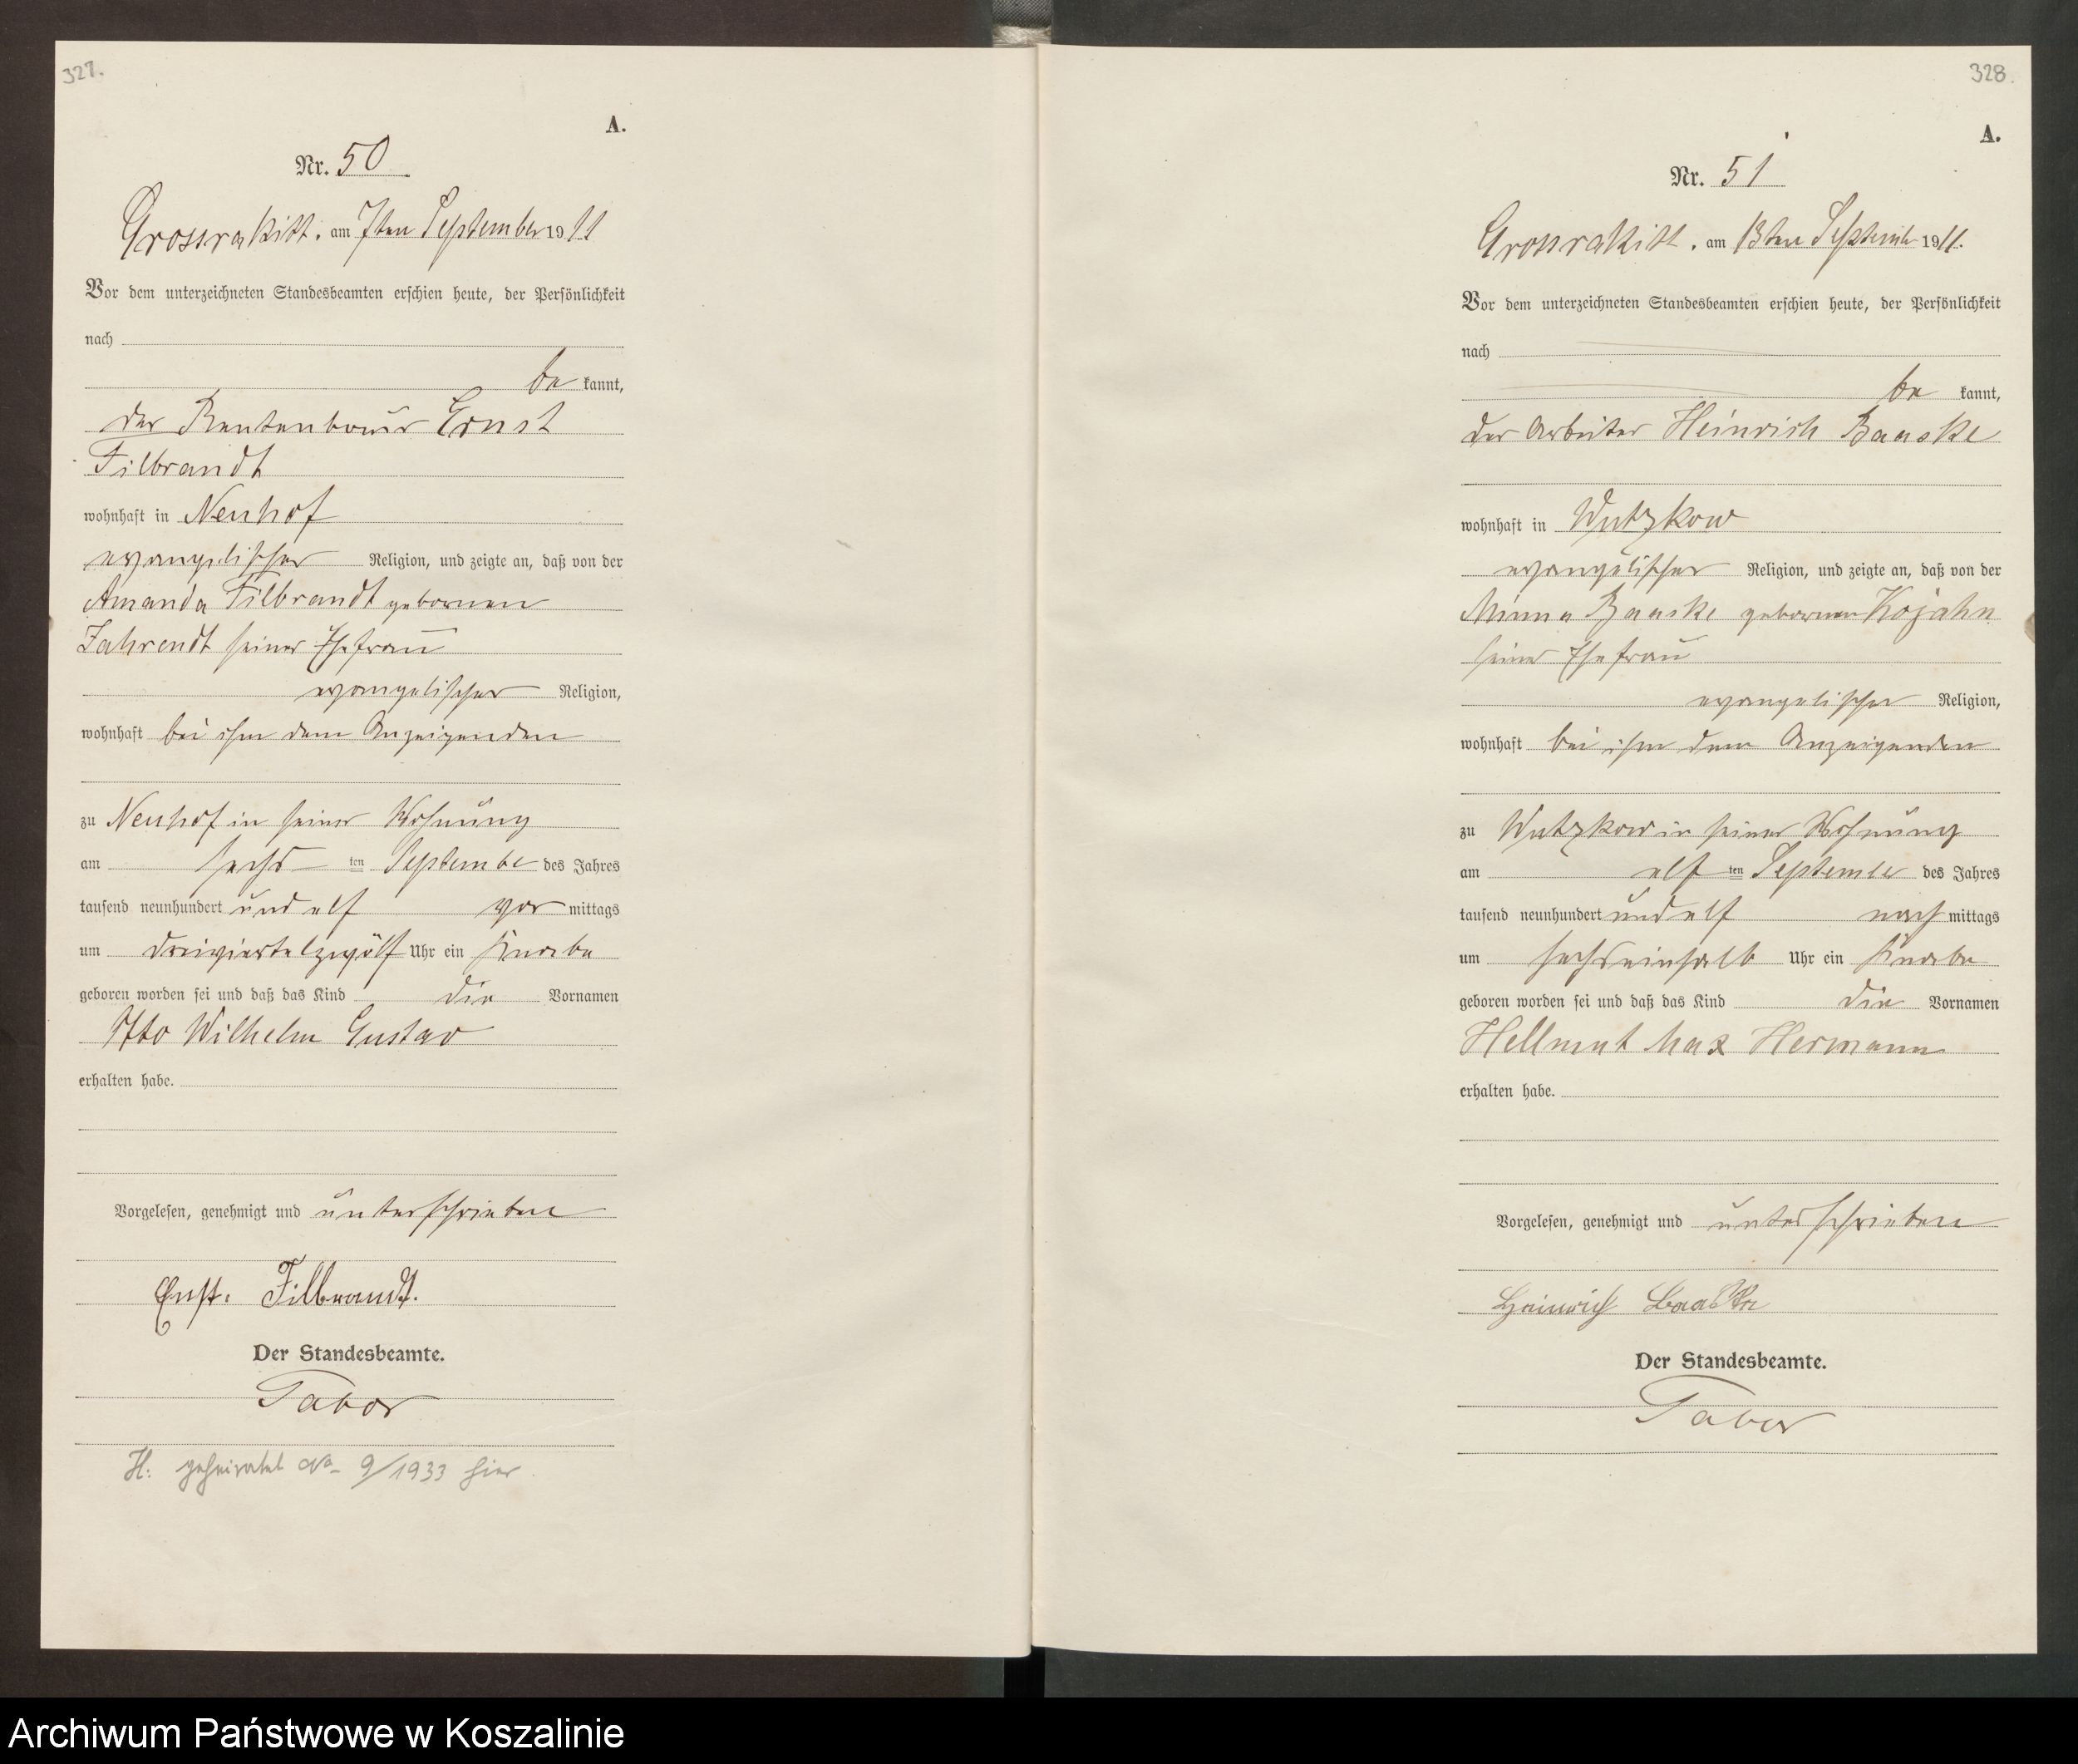 327.
A.
Nr. 50
Grossrakitt. am 7ten September 1911
Vor dem unterzeichneten Standesbeamten erschien heute, der Persönlichkeit
nach
be kannt,
der Rentenbauer Ernst
Filbrandt
wohnhaft in Neuhof
evangelischer Religion, und zeigte an, daß von der
Amanda Filbrandt geborenen
Fahrendt seiner Ehefrau
evangelischer Religion,
wohnhaft bei ihm dem Anzeigenden
zu Neuhof in seiner Wohnung
am sechs ten September des Jahres
tausend neunhundert und elf vor mittags
um dreiviertelzwölf Uhr ein Knabe
geboren worden sei und daß das Kind die Vornamen
Otto Wilhelm Gustav
erhalten habe.
Vorgelesen, genehmigt und unterschrieben
Ernst. Filbrandt.
Der Standesbeamte.
Tabor
H: geheiratet No 9/1933 hier.
328.
A.
Nr. 51
Grossrakitt. am 13ten September 1911.
Vor dem unterzeichneten Standesbeamten erschien heute, der Persönlichkeit
nach
be kannt,
der Arbeiter Heinrich Baaske
wohnhaft in Wutzkow
evangelischer Religion, und zeigte an, daß von der
Minna Baaske geborenen Kojahn
seiner Ehefrau
evangelischer Religion,
wohnhaft bei ihm dem Anzeigenden
zu Wutzkow in seiner Wohnung
am elf ten September des Jahres
tausend neunhundert und elf nach mittags
um sechseinhalb Uhr ein Knabe
geboren worden sei und daß das Kind die Vornamen
Hellmut Max Hermann
erhalten habe.
Vorgelesen, genehmigt und unterschrieben
Heinrich Baaske
Der Standesbeamte.
Tabor
Archiwum Państwowe w Koszalinie